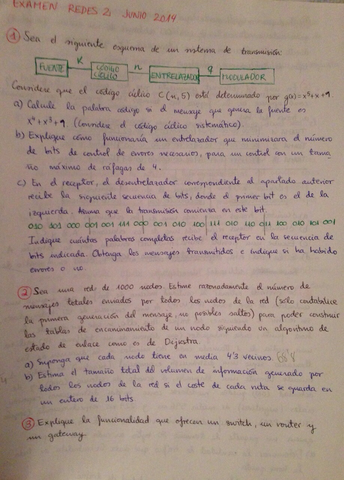 EXAMEN REDES 2 JUNIO 2014
① Sea el siguiente esquema de un sistema de transmisión:
FUENTE K CÓDIGO CÍCLICO n ENTRELAZADO q MODULADOR
Considere que el código cíclico C(n,5) está determinado por g(x)=x³+x+1.
a) Calcule la palabra código si el mensaje que genera la fuente es
x⁴+x³+1 (considere el código cíclico sistemático).
b) Explique cómo funcionaría un entrelazador que minimizara el número
de bits de control de errores necesarios, para un control con un tama
ño máximo de ráfagas de 4.
c) En el receptor, el desentrelazador correspondiente al apartado anterior
recibe la siguiente secuencia de bits, donde el primer bit es el de la
izquierda. Asuma que la transmisión comienza en este bit.
010 101 000 001 001 111 000 001 010 100 111 010 110 011 100 010 101 001
Indique cuántas palabras completas recibe el receptor en la secuencia de
bits indicada. Obtenga los mensajes transmitidos e indique si ha habido
errores o no.
② Sea una red de 1000 nodos. Estime razonadamente el número de
mensajes totales enviados por todos los nodos de la red (sólo contabilice
la primera generación del mensaje, no posibles saltos) para poder construir
las tablas de encaminamiento de un nodo siguiendo un algoritmo de
estado de enlace como es de Dijkstra.
a) Suponga que cada node tiene en media 4'3 vecinos.
b) Estima el tamaño total del volumen de información generado por
todos los nodos de la red si el coste de cada ruta se guarda en
un entero de 16 bits.
③ Explique la funcionalidad que ofrecen un switch, un router y
un gateway.